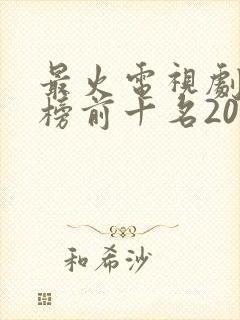 最火電視劇
榜前十名20
和希沙